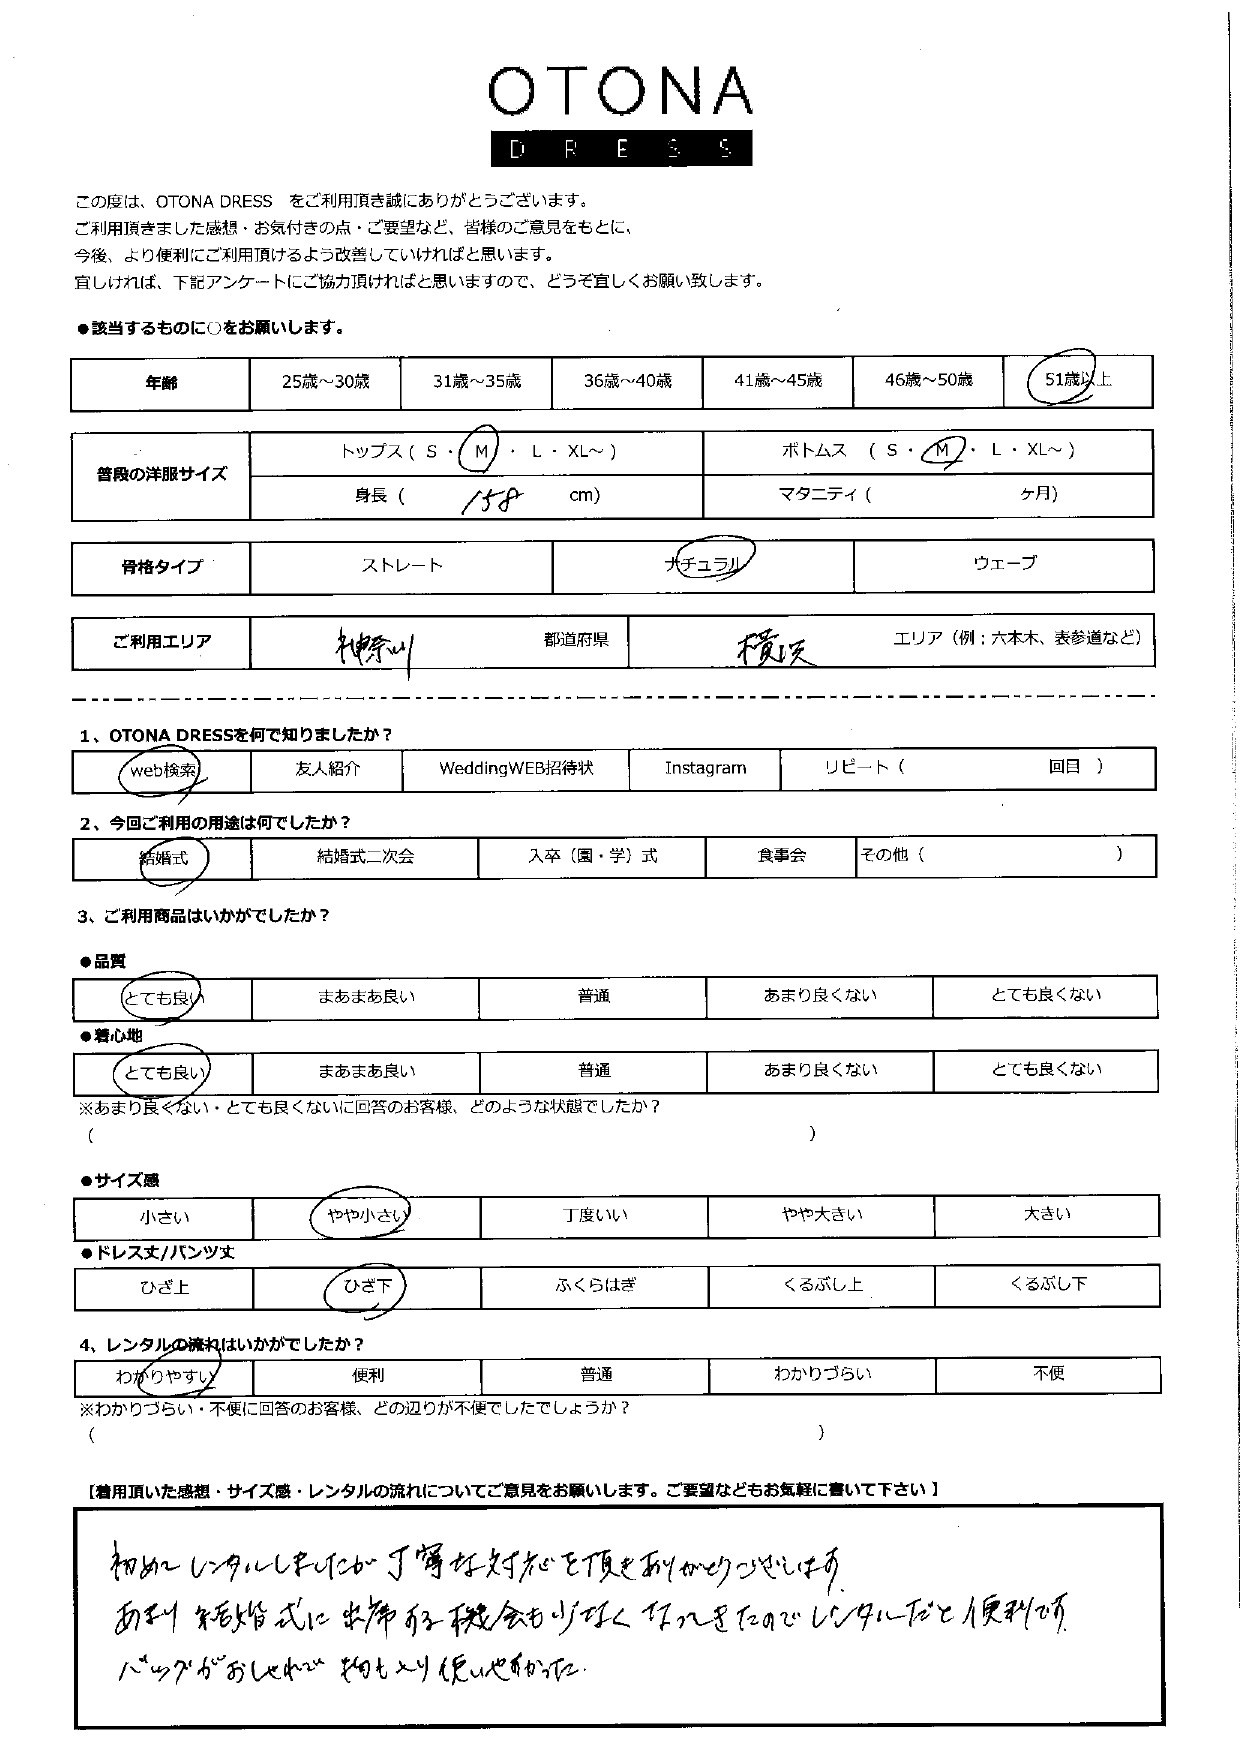 OTONA
DRESS
この度は、OTONA DRESS　をご利用頂き誠にありがとうございます。
ご利用頂きました感想・お気付きの点・ご要望など、皆様のご意見をもとに、
今後、より便利にご利用頂けるよう改善していければと思います。
宜しければ、下記アンケートにご協力頂ければと思いますので、どうぞ宜しくお願い致します。
●該当するものに○をお願いします。
年齢 25歳～30歳 31歳～35歳 36歳～40歳 41歳～45歳 46歳～50歳 51歳以上
普段の洋服サイズ トップス ( S ・ M ・ L ・ XL～ ) ボトムス ( S ・ M ・ L ・ XL～ )
身長 ( 158 cm) マタニティ ( ケ月)
骨格タイプ ストレート ナチュラル ウェーブ
ご利用エリア 神奈川 都道府県 横浜 エリア（例；六本木、表参道など）
1、OTONA DRESSを何で知りましたか？
web検索 友人紹介 WeddingWEB招待状 Instagram リピート ( 回目 )
2、今回ご利用の用途は何でしたか？
結婚式 結婚式二次会 入卒（園・学）式 食事会 その他 ( )
3、ご利用商品はいかがでしたか？
●品質
とても良い まあまあ良い 普通 あまり良くない とても良くない
●着心地
とても良い まあまあ良い 普通 あまり良くない とても良くない
※あまり良くない・とても良くないに回答のお客様、どのような状態でしたか？
( )
●サイズ感
小さい やや小さい 丁度いい やや大きい 大きい
●ドレス丈/パンツ丈
ひざ上 ひざ下 ふくらはぎ くるぶし上 くるぶし下
4、レンタルの流れはいかがでしたか？
わかりやすい 便利 普通 わかりづらい 不便
※わかりづらい・不便に回答のお客様、どの辺りが不便でしたでしょうか？
( )
【着用頂いた感想・サイズ感・レンタルの流れについてご意見をお願いします。ご要望などもお気軽に書いて下さい 】
初めてレンタルしましたが丁寧な対応を頂きありがとうございます。
あまり結婚式に出席する機会も少なくなってきたのでレンタルだと便利です。
バッグがおしゃれで物も入り使いやすかった.